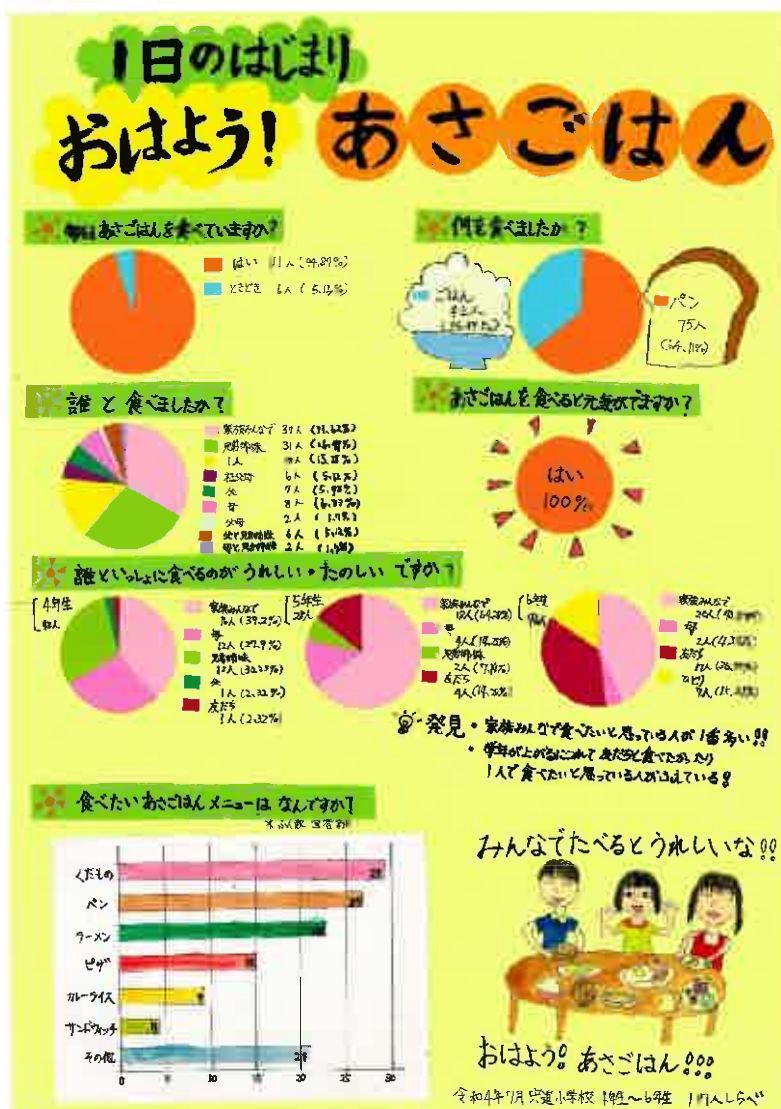 1日のはじまり
おはよう! あさごはん
毎日あさごはんを食べていますか?
はい 111人 (94.87%)
ときどき 6人 (5.13%)
何を食べましたか?
ごはん
42人
パン
75人
(64.11%)
誰と食べましたか?
家族みんなで
兄弟姉妹 31人
1人
祖父母 6人 (5.12%)
父 7人 (5.98%)
母 8人 (6.83%)
父母 2人 (1.7%)
父と兄弟姉妹 6人 (5.12%)
母と兄弟姉妹 2人
あさごはんを食べると元気がでますか?
はい
100%
誰といっしょに食べるのがうれしい・たのしいですか?
4年生
家族みんなで
母
12人 (27.9%)
兄弟姉妹
父
1人 (2.32%)
友だち
1人 (2.32%)
5年生
28人
家族みんなで
18人
母
4人
兄弟姉妹
2人
友だち
4人
6年生
家族みんなで
母
2人
友だち
ひとり
発見・家族みんなで食べたいと思っている人が1番多い!!
・学年が上がるにつれて友だちと食べたかったり
1人で食べたいと思っている人がふえている!
食べたいあさごはんメニューはなんですか?
くだもの
パン
ラーメン
ピザ
カレーライス
サンドウィッチ
その他
0 5 10 15 20 25 30
みんなでたべるとうれしいな!!
おはよう! あさごはん!!!
令和4年7月宍道小学校 4年生〜6年生 117人しらべ